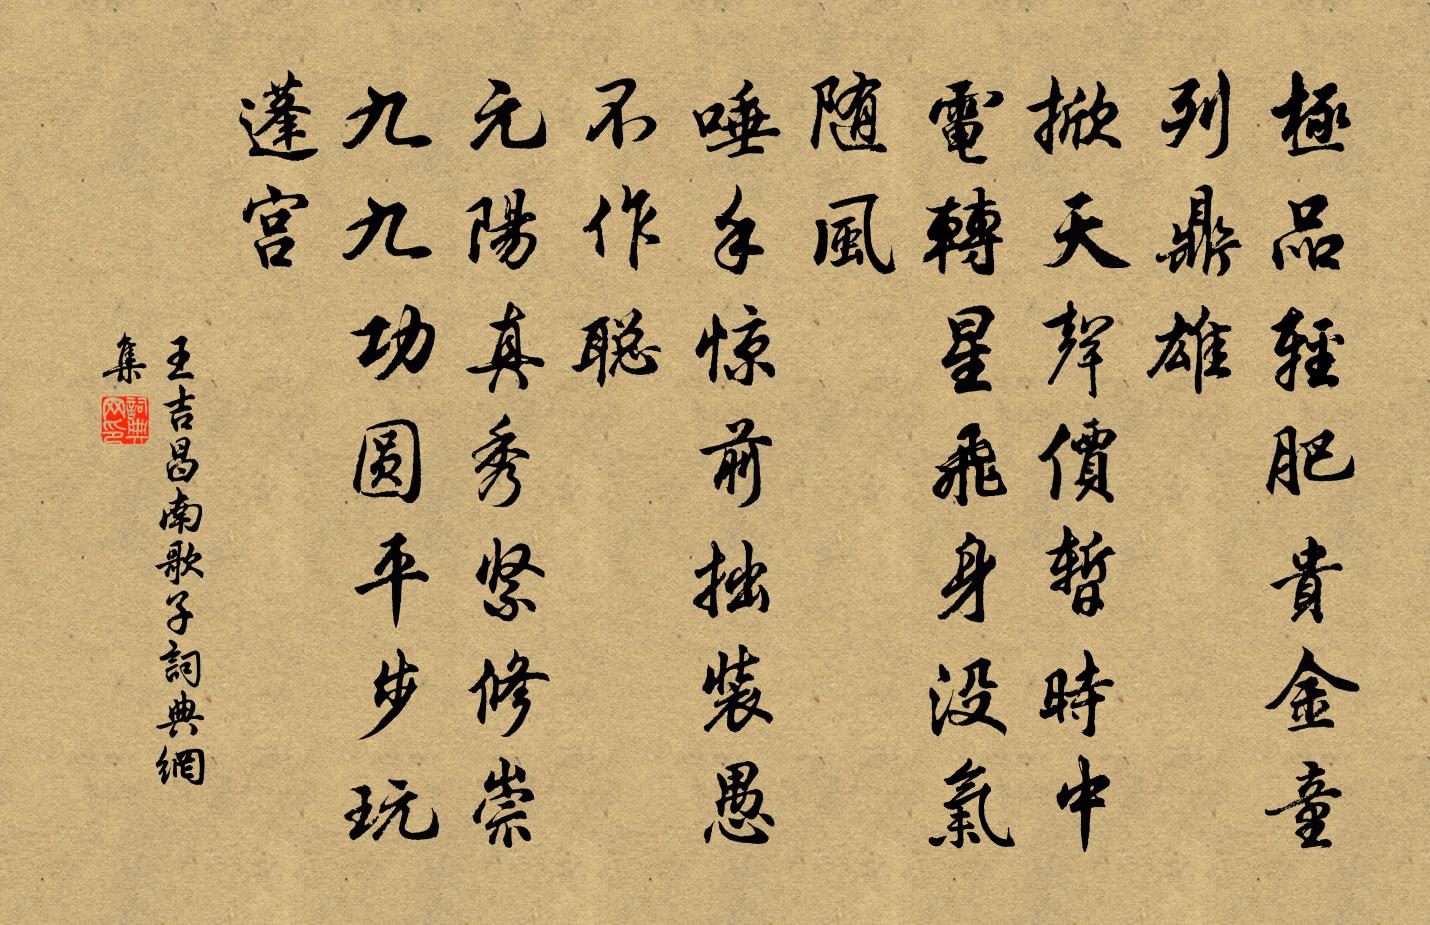 極品輕肥貴金童
列鼎雄
掀天聲價暫時中
電轉星飛身没氣
随風
唾手惊前拙裝愚
不作聡
元陽真秀紧修崇
九九功圆平步玩
蓬宫
王吉昌南歌子詞典網
集
詞典
网印